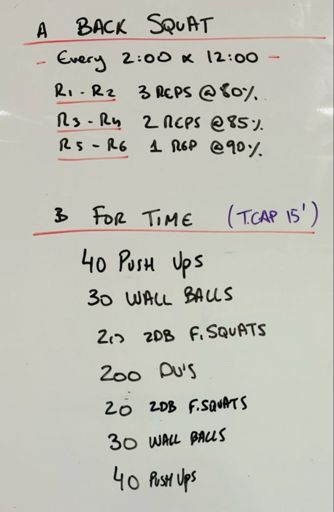 A BACK SQUAT
- Every 2:00 x 12:00 -
R1 - R2 3 REPS @80%
R3 - R4 2 REPS @85%
R5 - R6 1 REP @90%
B FOR TIME (T.CAP 15')
40 PUSH UPS
30 WALL BALLS
20 2DB F.SQUATS
200 DU'S
20 2DB F.SQUATS
30 WALL BALLS
40 PUSH UPS